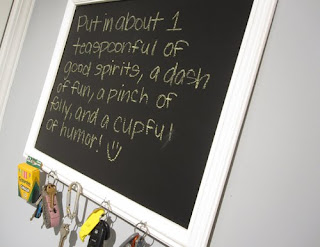 Put in about 1
teaspoonful of
good spirits, a dash
of fun, a pinch of
folly, and a cupful
of humor! :)